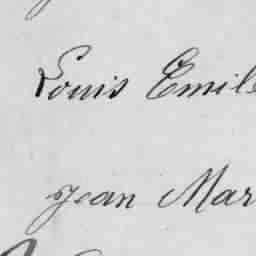 Louis Emile
Jean Mar